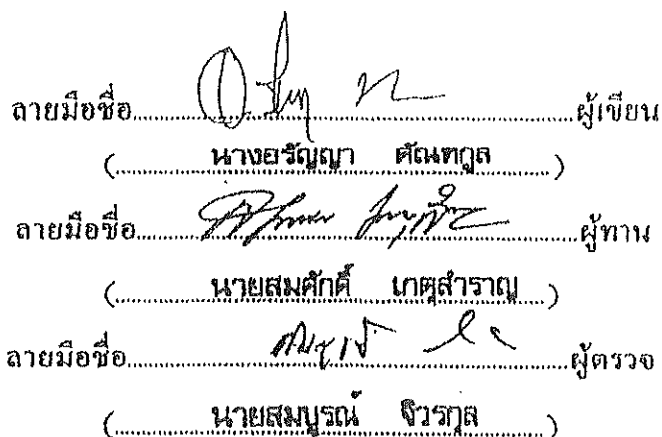 ลายมือชื่อ..........ผู้เขียน
(..........นางอรัญญา ศัณฑกูล..........)
ลายมือชื่อ..........ผู้ทาน
(..........นายสมศักดิ์ เกตุสำราญ..........)
ลายมือชื่อ..........ผู้ตรวจ
(..........นายสมบูรณ์ จิวรกุล..........)